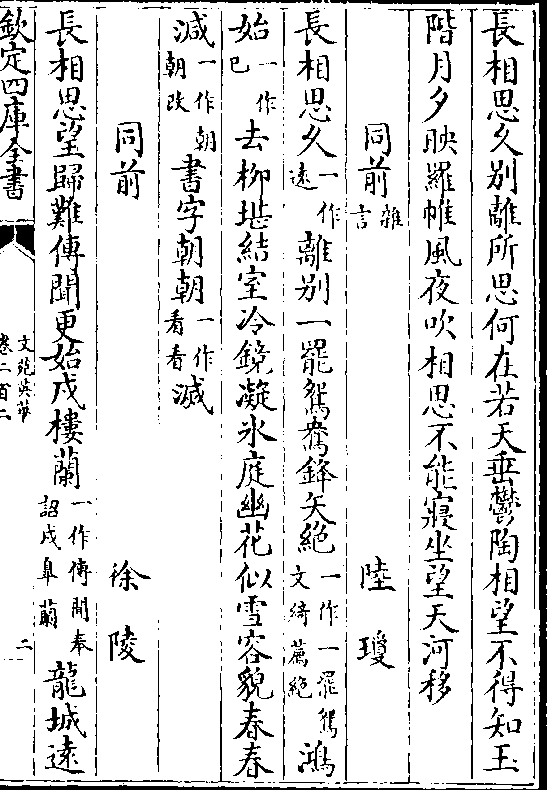 長相思久别離所思何在若天垂鬱陶相望不得知玉
階月夕映羅帷風夜吹相思不能寢坐望天河移
同前雜言 陸瓊
長相思久一作遠離别一罷鴛鴦鋒矢絶一作一罷鴛文綺薦絶鴻
始一作已去柳堪結室冷鏡凝氷庭幽花似雪容貌春春
減一作朝朝改書字朝朝一作看看滅
同前 徐陵
長相思望歸難傳聞更始戍樓蘭一作傳聞奉詔戍臯蘭龍城逺
欽定四庫全書 文苑英華卷二百二 二